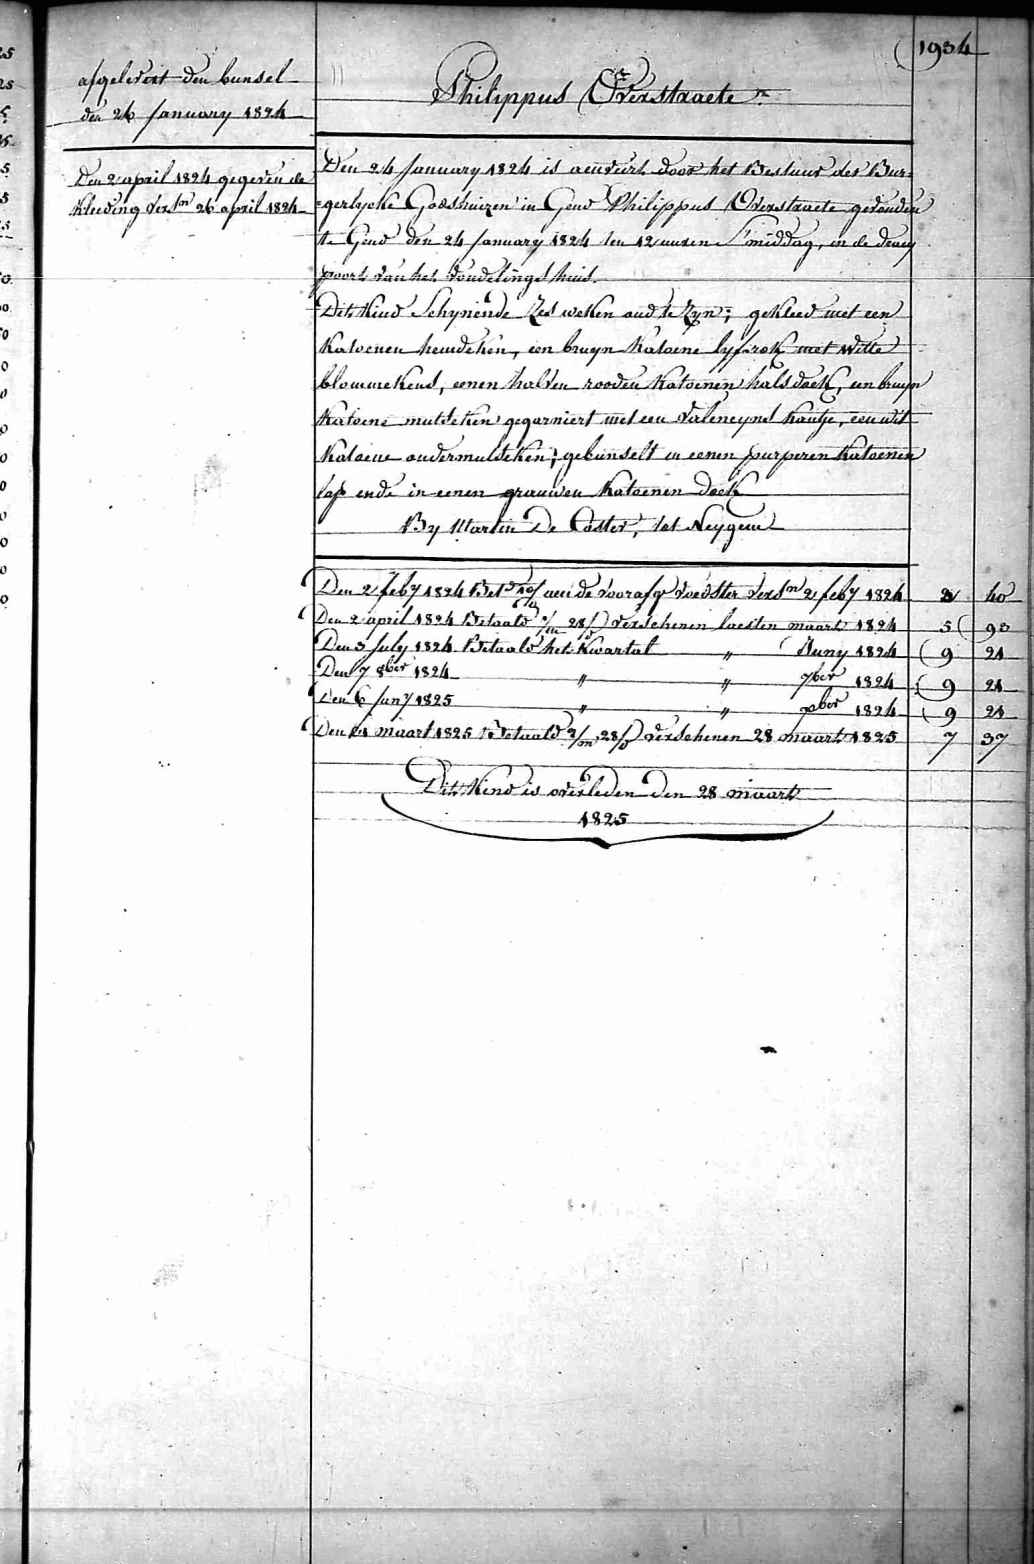 1934
afgelevert den bunsel
den 26 January 1824
Den 2 april 1824 gegeven de
kleeding vers.n 26 april 1824
Philippus Overstraete
Den 24 January 1824 is aenveirt door het Bestuur der Bur-
gerlyche Godshuizen in Gend Philippus Overstraete gevonden
te Gend den 24 January 1824 ten 12 uuren S'middag, in de draey
poort van het vondelings huis.
Dit kind Schynende Zes weken oud te Zyn; gekleed met een
katoenen hemdeken, een bruyn katoene lyfrok met witte
blommekens, eenen halven rooden katoenen halsdoek, een bruyn
katoene mutseken gegarniert met een valencyns kantje, een wit
katoene ondermutseken; gebunselt in eenen purperen katoenen
lap ende in eenen grauwen katoenen doek
By Martin De Coster, tot Neygem
Den 2 feb.y 1824 Bet.d aen de voorafg voedster vers.n 2 feb.y 1824 2 40
Den 2 april 1824 Betaald 1/m 28/d verschenen laesten maart 1824 5 93
Den 3 July 1824 Betaald het kwartal " Juny 1824 9 21
Den 7 8ber 1824 " " 7ber 1824 9 21
Den 6 Jan.y 1825 " " xber 1824 9 21
Den maart 1825 Betaald 2/m 28/d verschenen 28 maart 1825 7 37
Dit kind is overleden den 28 maart
1825